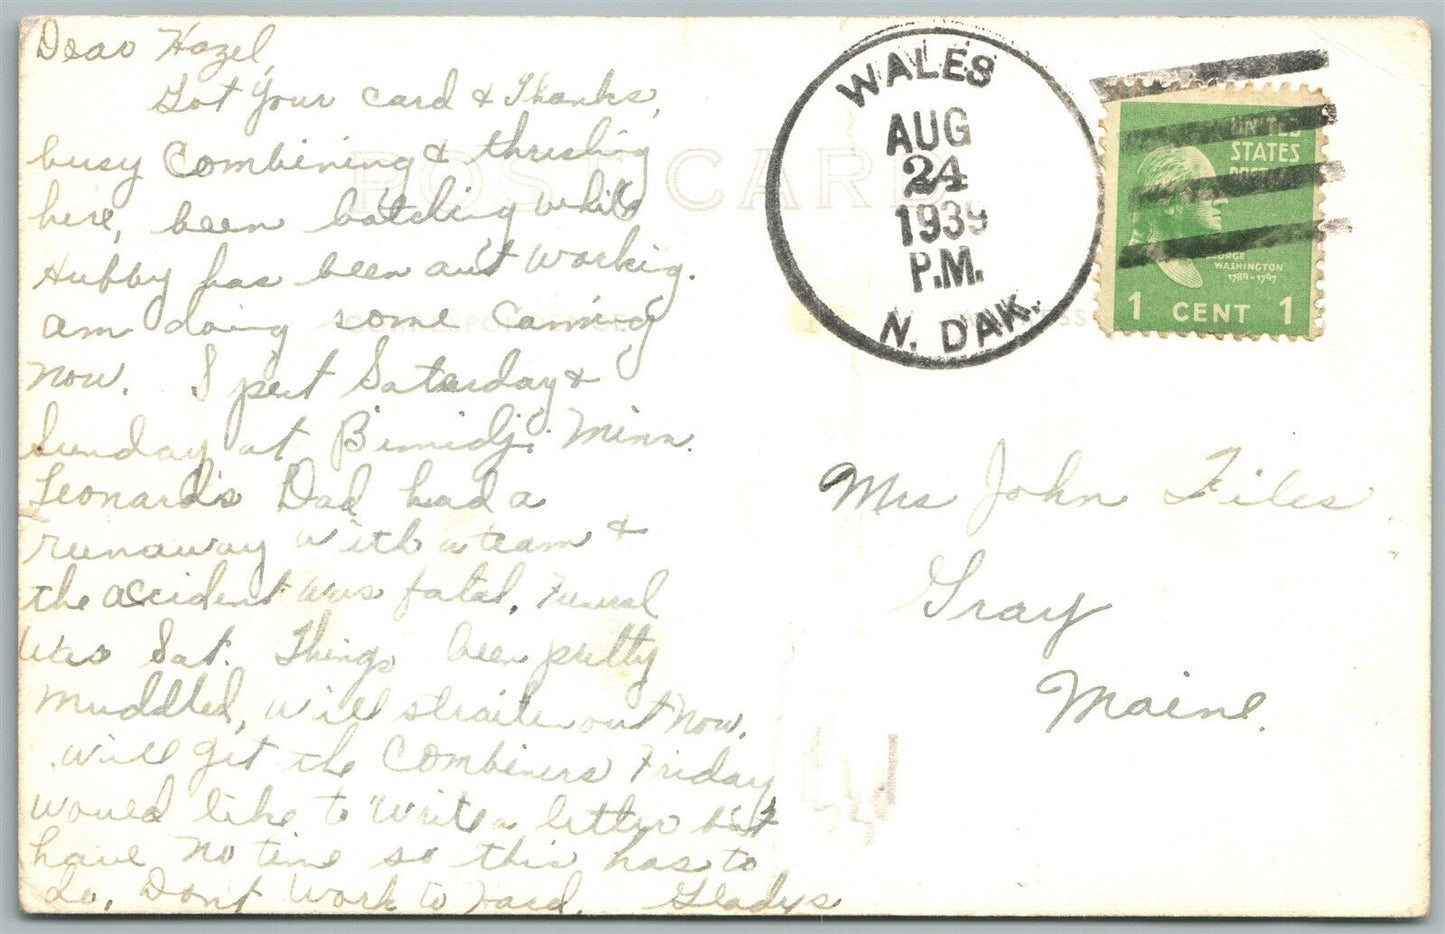 Dear Hazel,
Got your card & Thanks,
busy Combining & threshing
here, been batching while
Hubby has been out working.
am doing some Canning
now. Spent Saturday &
Sunday at Bimidji Minn.
Leonard's Dad had a
runaway with a team &
the accident was fatal. Funeral
was Sat. Things been pretty
muddled, will straiten out now.
will get the Combiners Friday
would like to write a letter but
have no time so this has to
do. Dont Work to Hard. Gladys
POST CARD
CORRESPONDENCE
WALES
AUG
24
1939
P.M.
N. DAK.
UNITED
STATES
POSTAGE
GEORGE
WASHINGTON
1789-1797
1 CENT 1
Mrs John Files
Gray
Maine.